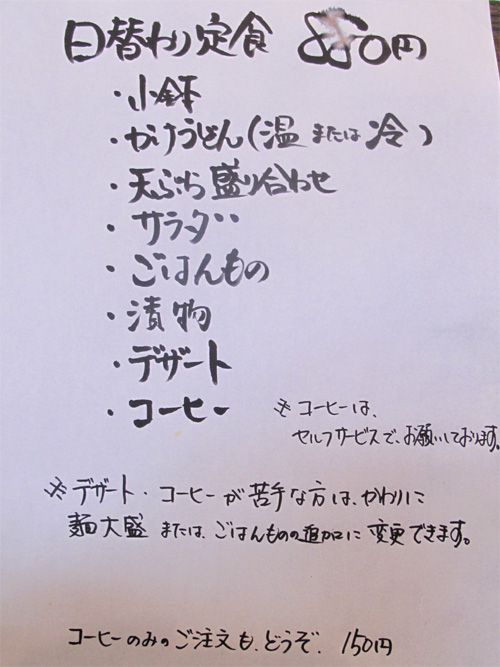 日替わり定食 850円
・小鉢
・かけうどん(温 または 冷)
・天ぷら盛り合わせ
・サラダ
・ごはんもの
・漬物
・デザート
・コーヒー ※コーヒーは、
セルフサービスで、お願いしております。
※デザート・コーヒーが苦手な方は、かわりに
麺大盛 または、ごはんものの追加に変更できます。
コーヒーのみのご注文も、どうぞ、150円